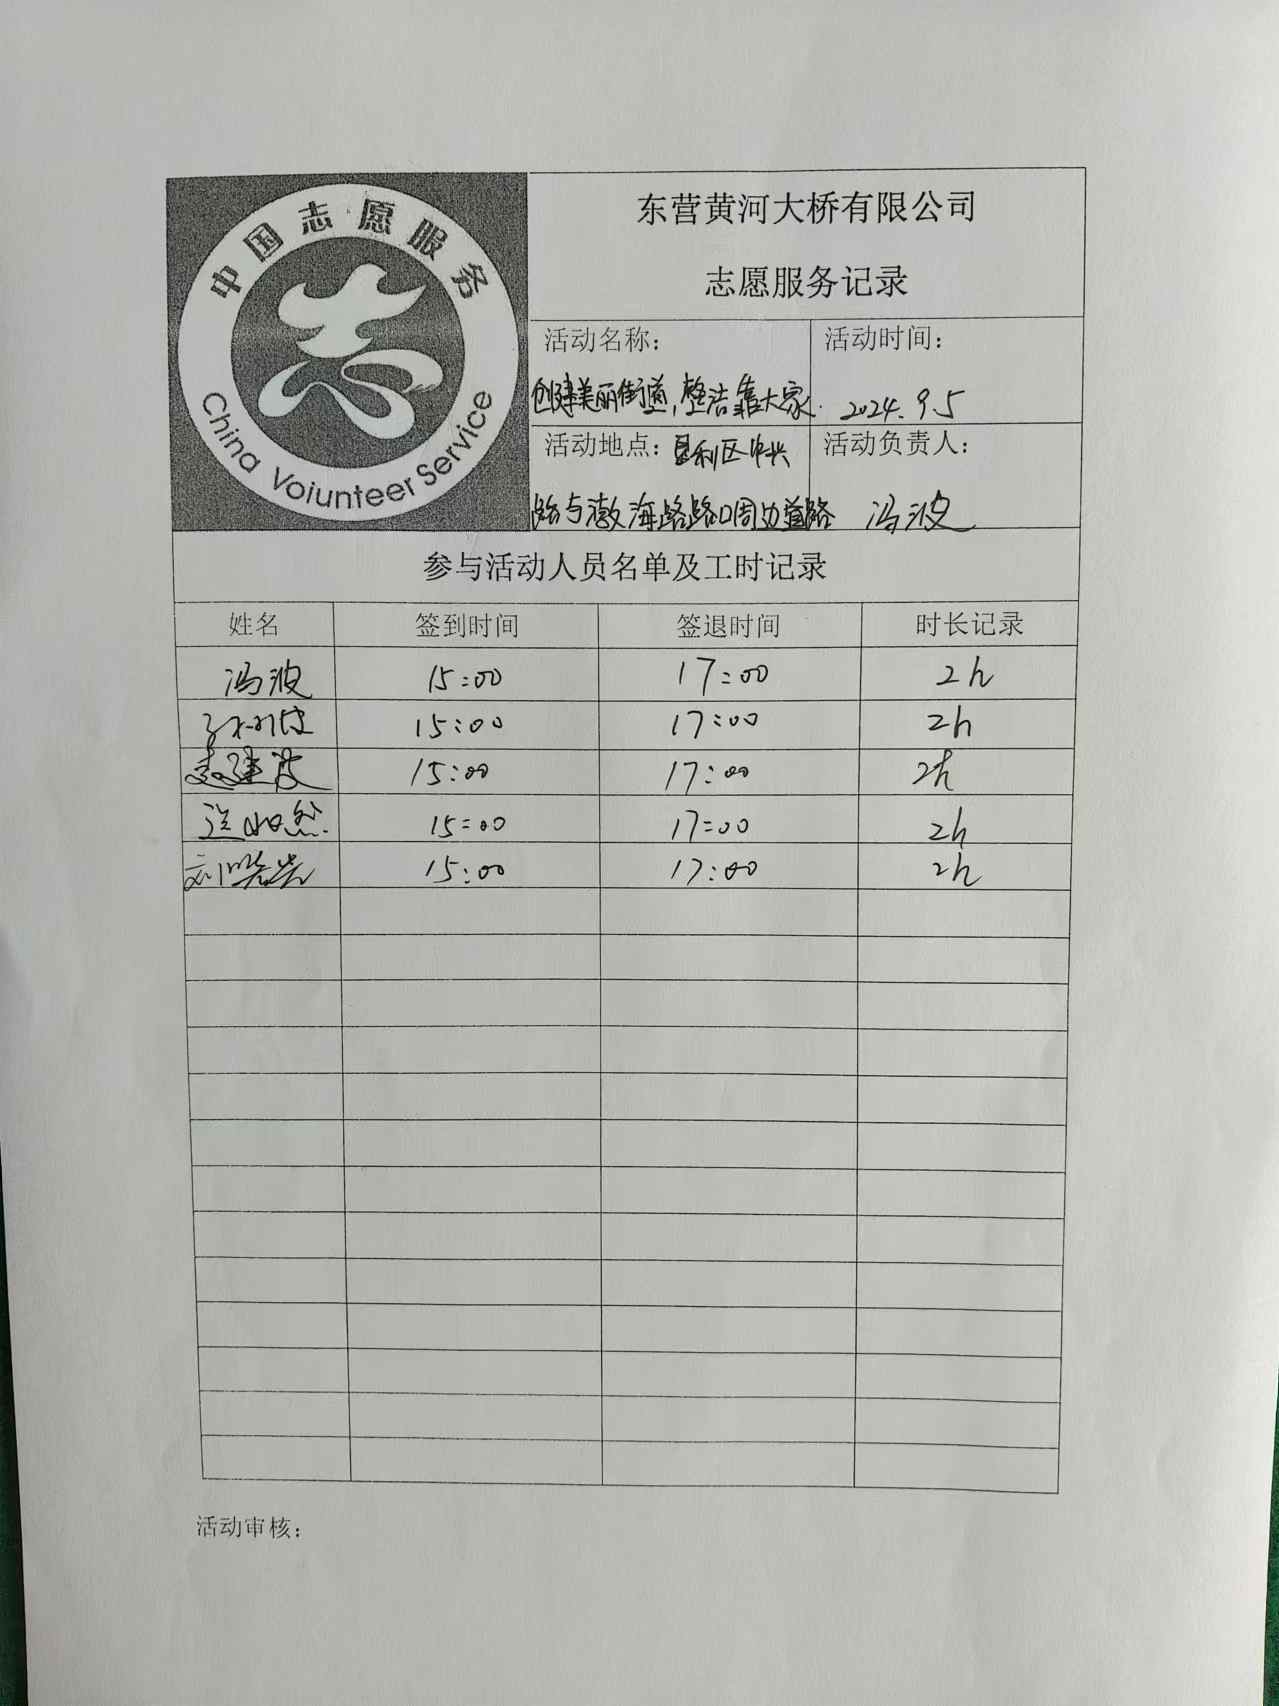 中国志愿服务
China Voiunteer Service
东营黄河大桥有限公司
志愿服务记录
活动名称:
创建美丽街道,整洁靠大家.
活动时间:
2024.9.5
活动地点:垦利区中兴
路与渤海路路口周边道路
活动负责人:
冯波
参与活动人员名单及工时记录
姓名 签到时间 签退时间 时长记录
冯波 15:00 17:00 2h
15:00 17:00 2h
建波 15:00 17:00 2h
15:00 17:00 2h
刘 15:00 17:00 2h
活动审核: